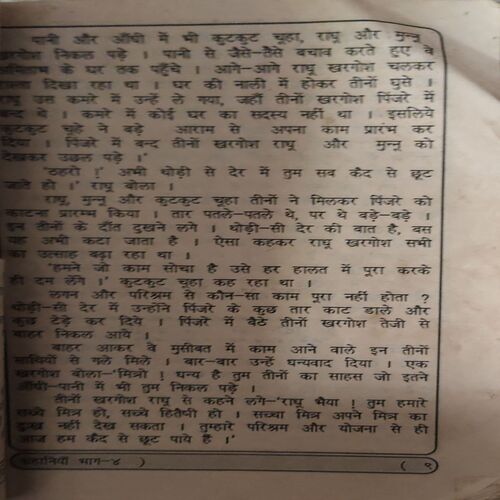 पानी और आँधी में भी कुटकुट चूहा, राघू और मुन्नू
खरगोश निकल पड़े । पानी से जैसे-तैसे बचाव करते हुए वे
के घर तक पहुँचे । आगे-आगे राघू खरगोश चलकर
रास्ता दिखा रहा था । घर की नाली में होकर तीनों घुसे ।
राघू उस कमरे में उन्हें ले गया, जहाँ तीनों खरगोश पिंजरे में
बन्द थे । कमरे में कोई घर का सदस्य नहीं था । इसलिये
कुटकुट चूहे ने बड़े आराम से अपना काम प्रारंभ कर
दिया । पिंजरे में बन्द तीनों खरगोश राघू और मुन्नू को
देखकर उछल पड़े ।'
'ठहरो !' अभी थोड़ी से देर में तुम सब कैद से छूट
जाते हो ।' राघू बोला ।
राघू, मुन्नू और कुटकुट चूहा तीनों ने मिलकर पिंजरे को
काटना प्रारम्भ किया । तार पतले-पतले थे, पर थे बड़े-बड़े ।
इन तीनों के दाँत दुखने लगे । थोड़ी-सी देर की बात है, बस
यह अभी कटा जाता है । ऐसा कहकर राघू खरगोश सभी
का उत्साह बढ़ा रहा था ।
'हमने जो काम सोचा है उसे हर हालत में पूरा करके
ही दम लेंगे ।' कुटकुट चूहा कह रहा था ।
लगन और परिश्रम से कौन-सा काम पूरा नहीं होता ?
थोड़ी-सी देर में उन्होंने पिंजरे के कुछ तार काट डाले और
कुछ टेड़े कर दिये । पिंजरे में बैठे तीनों खरगोश तेजी से
बाहर निकल आये ।
बाहर आकर वे मुसीबत में काम आने वाले इन तीनों
साथियों से गले मिले । बार-बार उन्हें धन्यवाद दिया । एक
खरगोश बोला-'मित्रो ! धन्य है तुम तीनों का साहस जो इतने
आँधी-पानी में भी तुम निकल पड़े ।
तीनों खरगोश राघू से कहने लगे-'राघू भैया ! तुम हमारे
सच्चे मित्र हो, सच्चे हितैषी हो । सच्चा मित्र अपने मित्र का
दुःख नहीं देख सकता । तुम्हारे परिश्रम और योजना से ही
आज हम कैद से छूट पाये हैं ।'
कहानियाँ भाग-४ ) ( ९